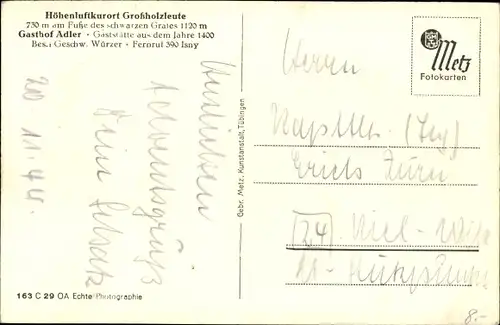 Höhenluftkurort Großholzleute
730 m am Fuße des schwarzen Grates 1120 m
Gasthof Adler • Gaststätte aus dem Jahre 1400
Bes.: Geschw. Würzer • Fernruf 390 Isny
20. 11. 40.
Herzlichen
Adventsgruß
Dein Schatz
163 C 29 OA Echte Photographie
Gebr. Metz, Kunstanstalt, Tübingen
Metz
Fotokarten
Herrn
Erich
(24) Kiel-
8.-